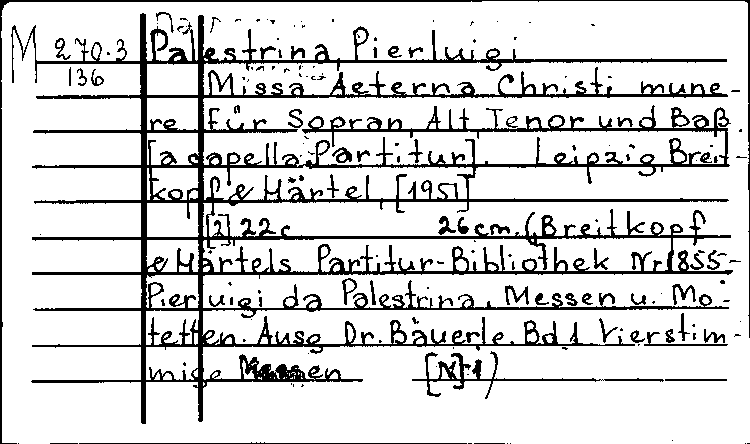 M 270.3 Palestrina, Pierluigi
136 Missa Aeterna Christi mune-
re für Sopran, Alt, Tenor und Baß.
[a capella. Partitur]. Leipzig, Breit-
kopf & Härtel, [1951]
[2], 22 c 26 cm. (Breitkopf
& Härtels Partitur-Bibliothek Nr 1855-
Pierluigi da Palestrina. Messen u. Mo-
tetten. Ausg Dr. Bäuerle. Bd 1 Vierstim-
mige Messen [N] 1)